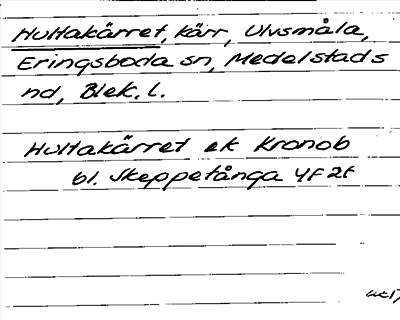 Hultakärret, kärr, Ulvsmåla,
Eringsboda sn, Medelstads
hd, Blek. l.
Hultakärret ek Kronob
bl. Skeppetånga 4F 2f